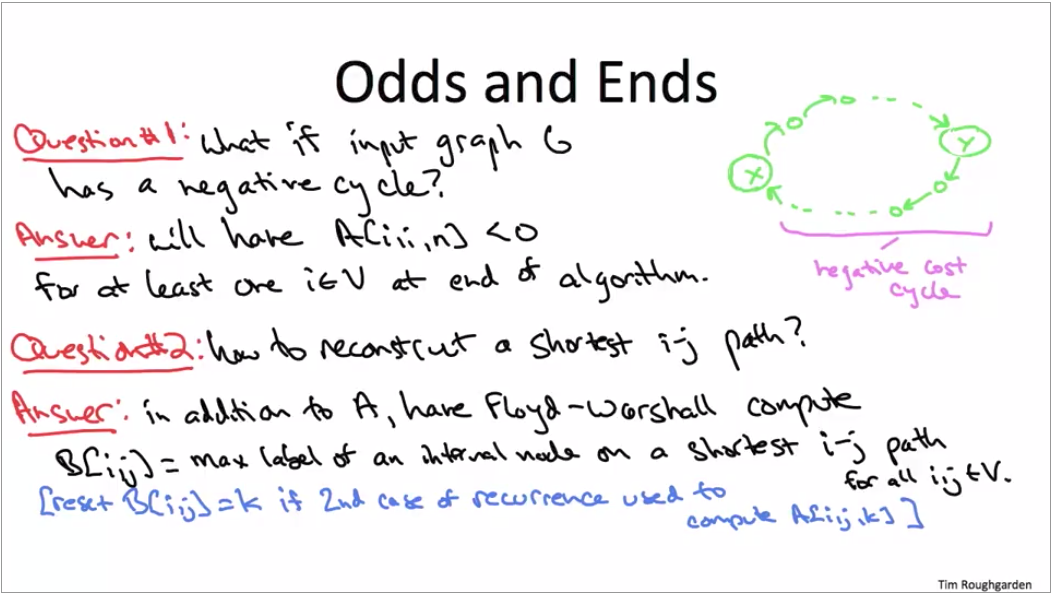 Odds and Ends
Question #1: What if input graph G
has a negative cycle?
Answer: will have A[i,i,n] < 0
for at least one i ∈ V at end of algorithm.
X
Y
negative cost
cycle
Question #2: how to reconstruct a shortest i-j path?
Answer: in addition to A, have Floyd-Warshall compute
B[i,j] = max label of an internal node on a shortest i-j path
for all i,j ∈ V.
[reset B[i,j] = k if 2nd case of recurrence used to
compute A[i,j,k]]
Tim Roughgarden